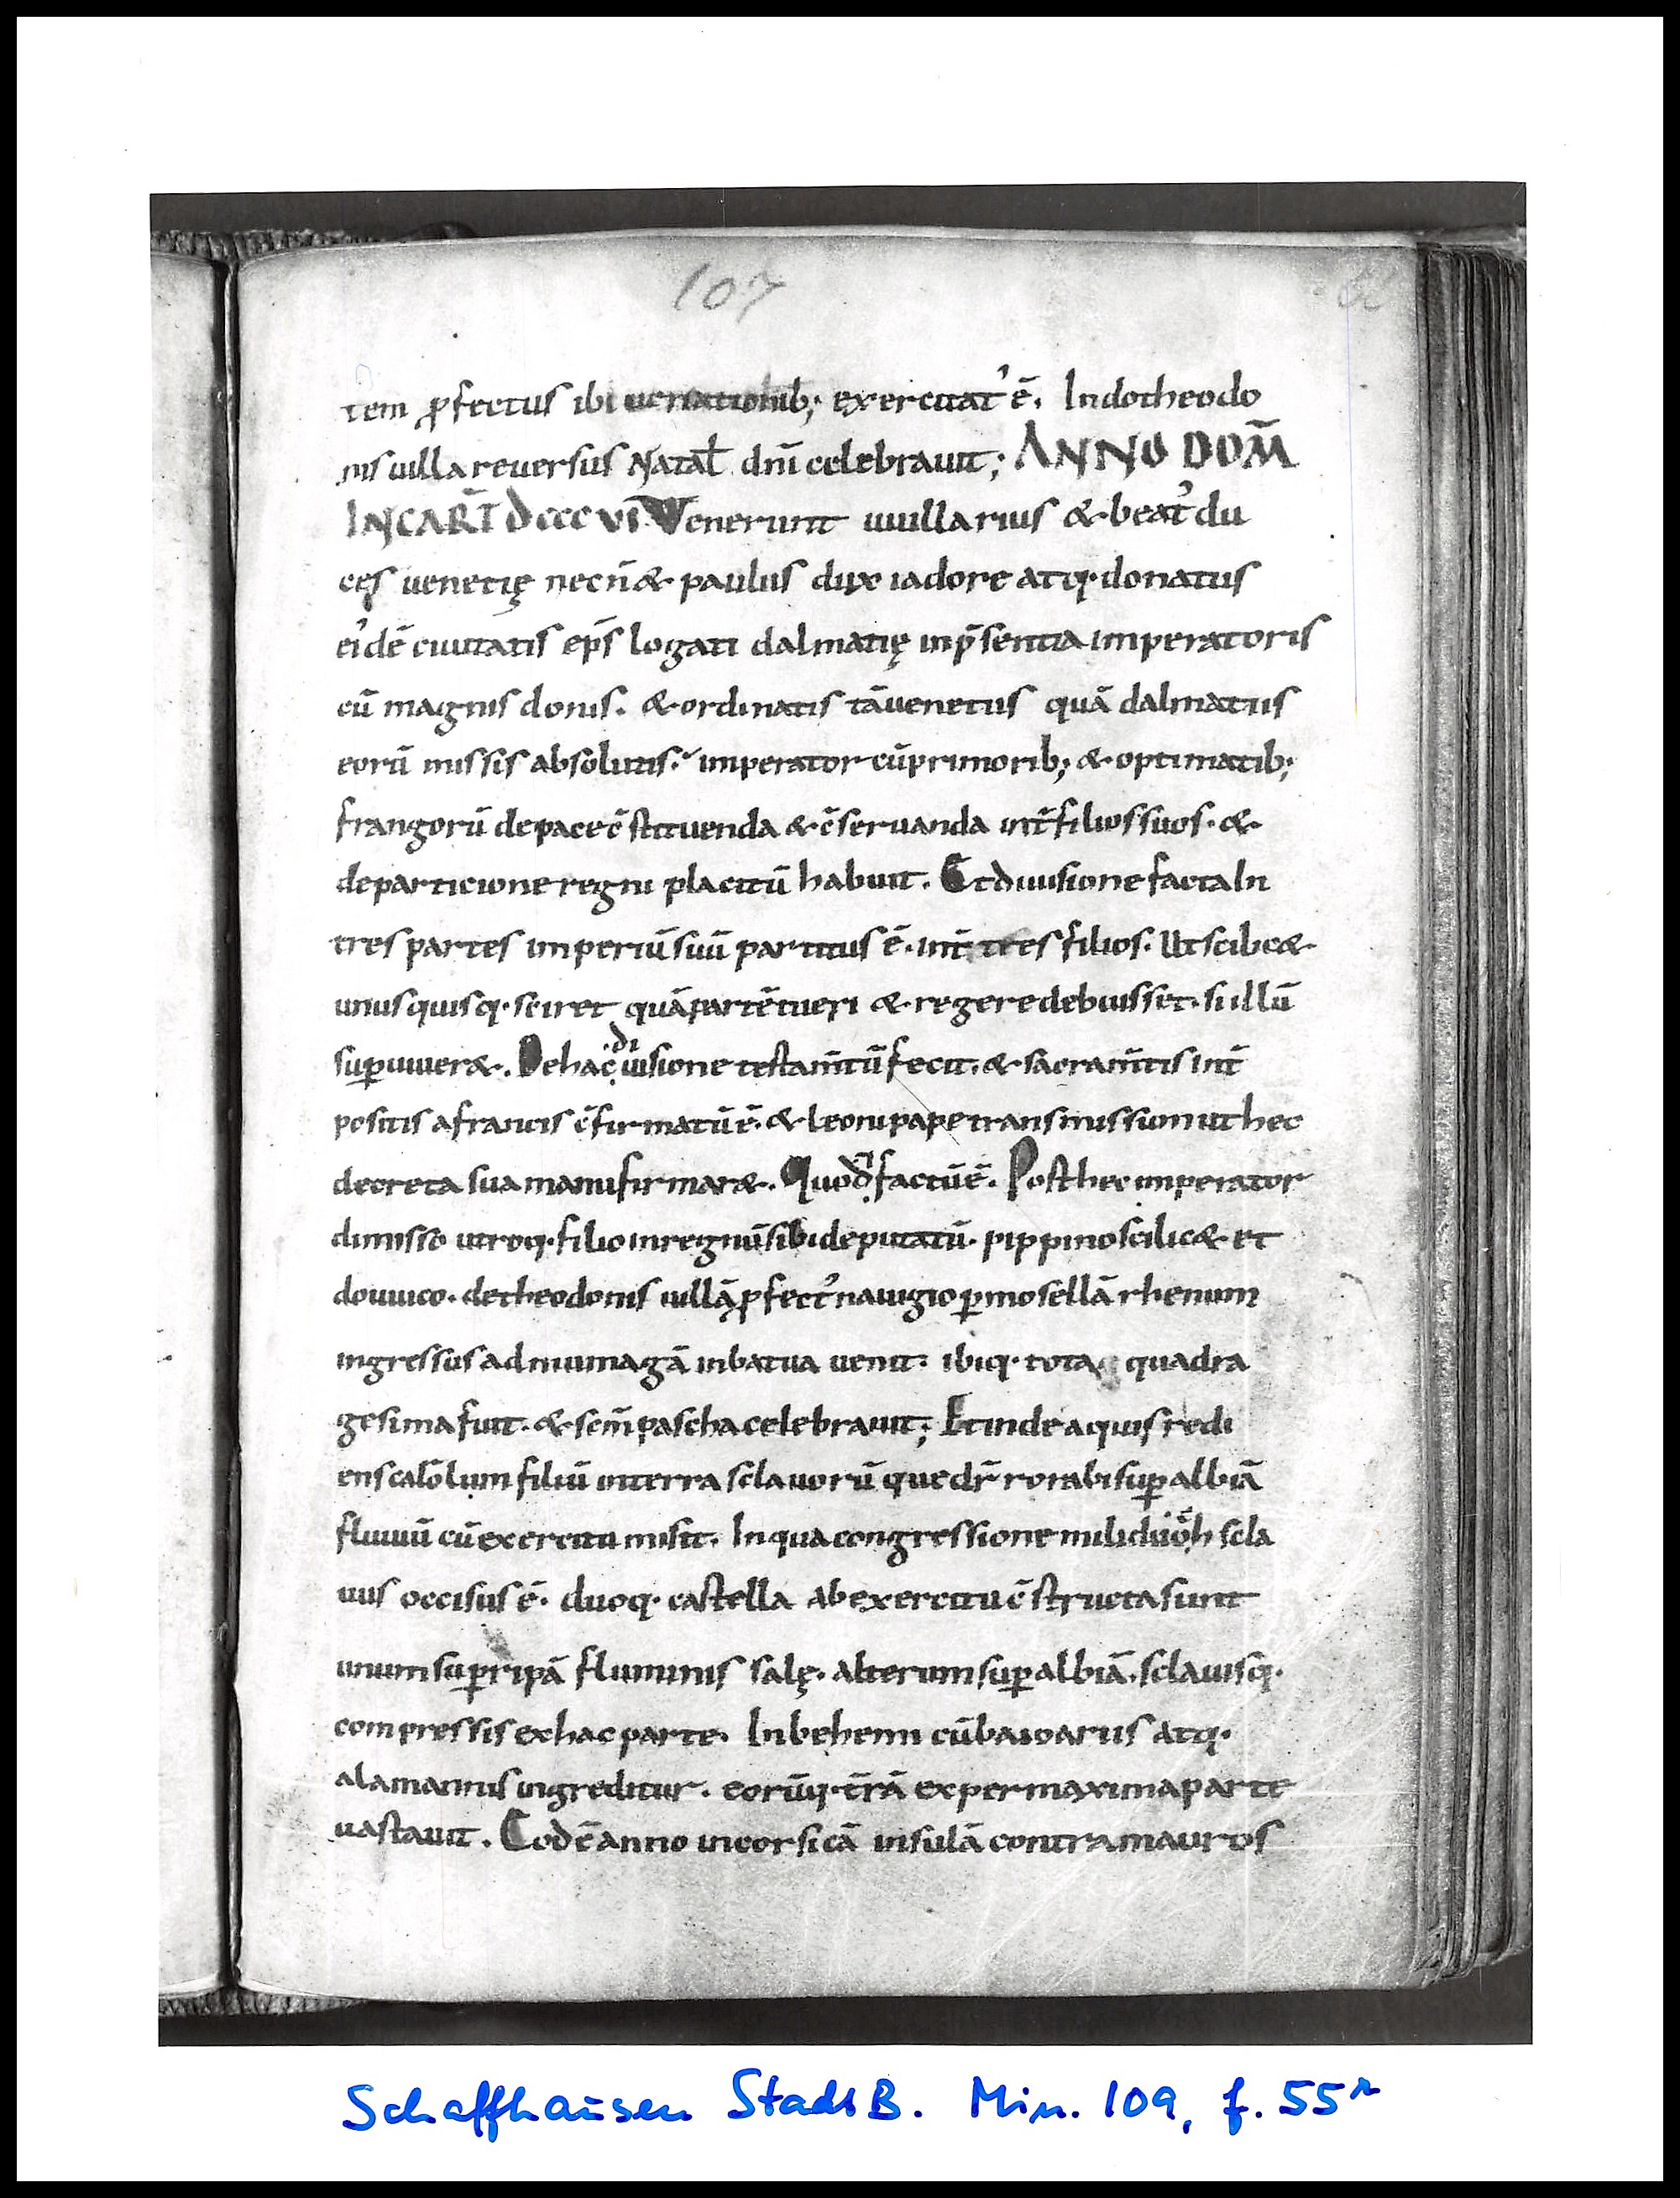 107
tem ꝓfectus ibi uenationib; exercitat᾽ ē. Indotheodo
nis uilla reuersus Natal̄ dn̄i celebrauit; ANNO DOM̄
INCAR̄T Dccc vī. Venerunt uuillarius & beat᾽ du
ces uenetię necn̄ & paulus dux iadore atq· donatus
ei᾽dē ciuitatis ep̄s logati dalmatię inp̄sentia imperatoris
cū magnis donis. & ordinatis tāuenetiis quā dalmatiis
eorū missis absolutis. imperator cūprimorib; & optimatib;
frangorū depacec̄stituenda & c̄seruanda int̄filiossuos· &
departicione regni placitū habuit. Etdiuisione facta In
tres partes imperiūsuū partitus ē. int̄ tres filios. Utscilic&
unusquisq· sciret quāpartētueri & regere debuisset. si illū
suꝑuiuer&. Dehac diuisione testam̄tū fecit. & sacram̄tis int̄
positis afrancis c̄firmatūē. & leonipape transmissum ut hec
decreta sua manufirmar&. Quod factūē. Posthec imperator
dimisso utroq· filio inregnūsibideputatū. pippino scilic& et
douuico. detheodonis uillāꝓfect᾽ nauigio ꝑmosellā rhenum
ingressus adniumagā inbatua uenit: ibiq· tota quadra
gesima fuit. & scm̄ pascha celebrauit; Et inde aquis redi
ens calōlum filiū interra sclauorū que dr̄ rorabi suꝑ albiā
fluuiū cū exercitu misit. In qua congressione miliduoh scla
uus occisus ē. duoq· castella abexercituc̄structa sunt
unum suꝑripā fluminis salę. alterum suꝑ albiā. sclauisq·
compressis exhac parte. In behemi cūbaioariis atq·
alamannis ingreditur. eorūq· t̄rā expermaxima parte
uastauit. Eodē anno incorsicā insulā contra mauros
Schaffhausen StadtB. Min. 109, f. 55r